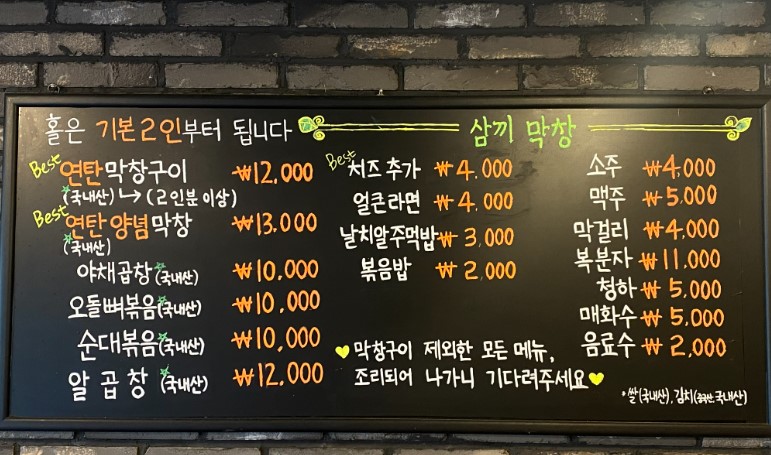 홀은 기본 2인부터 됩니다
삼끼 막창
Best 연탄막창구이 ₩12,000
(국내산) (2인분 이상)
Best 연탄 양념막창 ₩13,000
(국내산)
야채곱창(국내산) ₩10,000
오돌뼈볶음(국내산) ₩10,000
순대볶음(국내산) ₩10,000
알곱창 (국내산) ₩12,000
Best 치즈추가 ₩4,000
얼큰라면 ₩4,000
날치알주먹밥 ₩3,000
볶음밥 ₩2,000
막창구이 제외한 모든 메뉴,
조리되어 나가니 기다려주세요
소주 ₩4,000
맥주 ₩5,000
막걸리 ₩4,000
복분자 ₩11,000
청하 ₩5,000
매화수 ₩5,000
음료수 ₩2,000
*쌀(국내산), 김치(국내산)